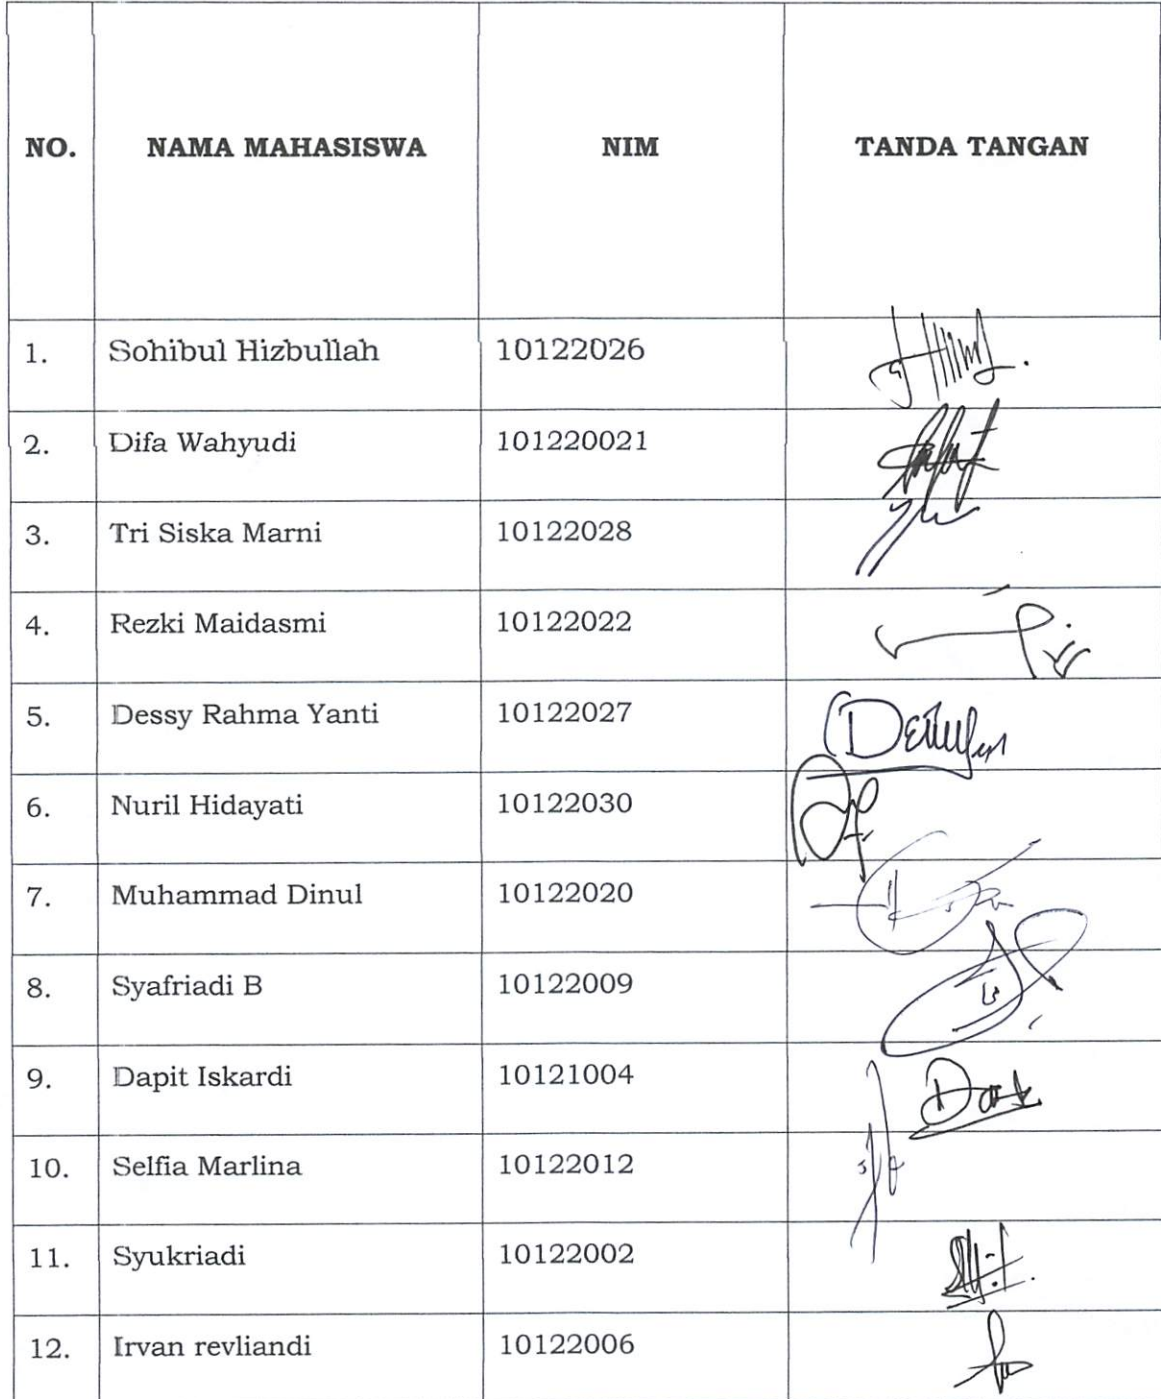 NO. NAMA MAHASISWA NIM TANDA TANGAN
1. Sohibul Hizbullah 10122026
2. Difa Wahyudi 101220021
3. Tri Siska Marni 10122028
4. Rezki Maidasmi 10122022
5. Dessy Rahma Yanti 10122027
6. Nuril Hidayati 10122030
7. Muhammad Dinul 10122020
8. Syafriadi B 10122009
9. Dapit Iskardi 10121004
10. Selfia Marlina 10122012
11. Syukriadi 10122002
12. Irvan revliandi 10122006